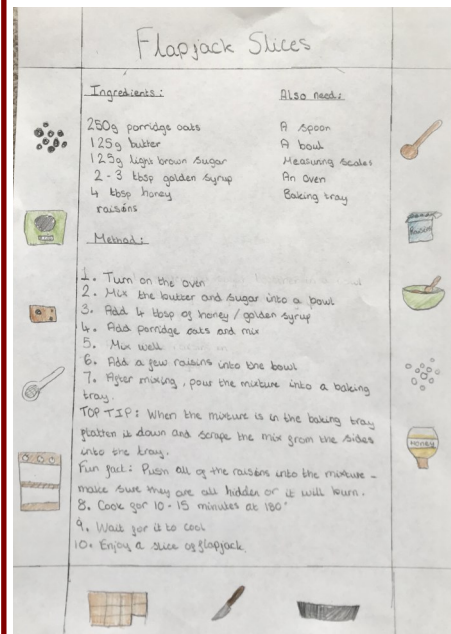 Flapjack Slices
Ingredients:
250g porridge oats
125g butter
125g light brown sugar
2 - 3 tbsp golden syrup
4 tbsp honey
raisins
Also need:
A spoon
A bowl
Measuring scales
An oven
Baking tray
Method:
1. Turn on the oven
2. Mix the butter and sugar into a bowl
3. Add 4 tbsp of honey / golden syrup
4. Add porridge oats and mix
5. Mix well
6. Add a few raisins into the bowl
7. After mixing, pour the mixture into a baking
tray.
TOP TIP: When the mixture is in the baking tray
flatten it down and scrape the mix from the sides
into the tray.
Fun fact: Push all of the raisins into the mixture -
make sure they are all hidden or it will burn.
8. Cook for 10 - 15 minutes at 180°
9. Wait for it to cool
10. Enjoy a slice of flapjack.
Raisins
HONEY